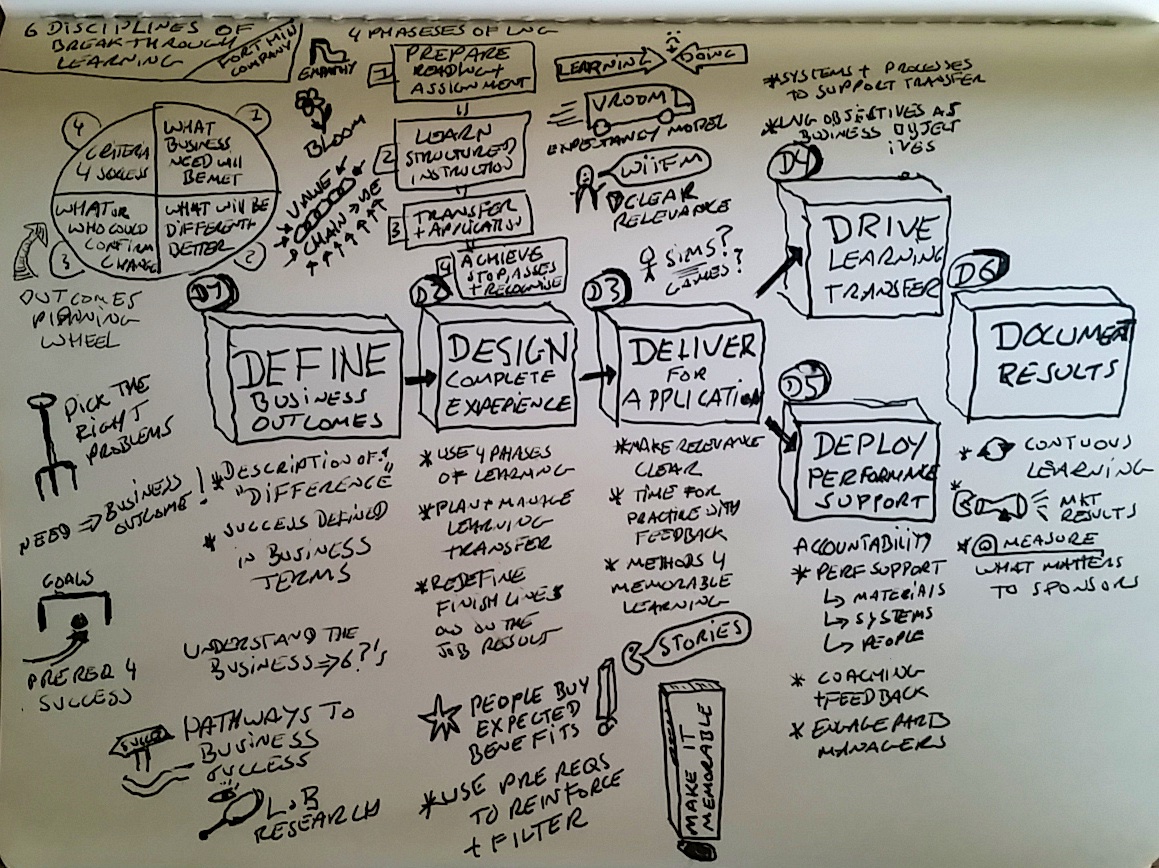 6 DISCIPLINES OF
BREAKTHROUGH
LEARNING
FORT HILL
COMPANY
4 PHASESES OF LNG
EMPATHY
BLOOM
1
PREPARE
READING +
ASSIGNMENT
2
LEARN
STRUCTURED
INSTRUCTION
3
TRANSFER
+ APPLICATION
4
ACHIEVE
STOP, ASSES
+ RECOGNISE
LEARNING
DOING
VROOM
EXPECTANCY MODEL
WIIFM
CLEAR
RELEVANCE
SIMS?
GAMES?
*SYSTEMS + PROCESSES
TO SUPPORT TRANSFER
*LNG OBJECTIVES AS
BUSINESS OBJECT
IVES
4
CRITERIA
4 SUCCESS
1
WHAT
BUSINESS
NEED WILL
BE MET
WHAT OR
WHO COULD
CONFIRM
CHANGE
3
WHAT WILL BE
DIFFERENT +
BETTER
2
OUTCOMES
PLANNING
WHEEL
VALUE
CHAIN
D1
DEFINE
BUSINESS
OUTCOMES
D2
DESIGN
COMPLETE
EXPERIENCE
D3
DELIVER
FOR
APPLICATION
D4
DRIVE
LEARNING
TRANSFER
D5
DEPLOY
PERFORMANCE
SUPPORT
D6
DOCUMENT
RESULTS
PICK THE
RIGHT
PROBLEMS
NEED ⇒ BUSINESS
OUTCOME!
GOALS
PREREQ 4
SUCCESS
* DESCRIPTION OF
"DIFFERENCE"
* SUCCESS DEFINED
IN BUSINESS
TERMS
UNDERSTAND THE
BUSINESS ⇒ 6 ?'S
PATHWAYS TO
BUSINESS
SUCCESS
LOB
RESEARCH
* USE 4 PHASES
OF LEARNING
* PLAN + MANAGE
LEARNING
TRANSFER
* REDEFINE
FINISH LINES
ON THE
JOB RESULT
PEOPLE BUY
EXPECTED
BENEFITS
* USE PRE REQS
TO REINFORCE
+ FILTER
* MAKE RELEVANCE
CLEAR
* TIME FOR
PRACTISE WITH
FEEDBACK
* METHODS 4
MEMORABLE
LEARNING
STORIES
MAKE IT
MEMORABLE
ACCOUNTABILITY
* PERF SUPPORT
↳ MATERIALS
↳ SYSTEMS
↳ PEOPLE
* COACHING
+ FEEDBACK
* ENGAGE PARTS
MANAGERS
* CONTUOUS
LEARNING
* MKT
RESULTS
* MEASURE
WHAT MATTERS
TO SPONSORS